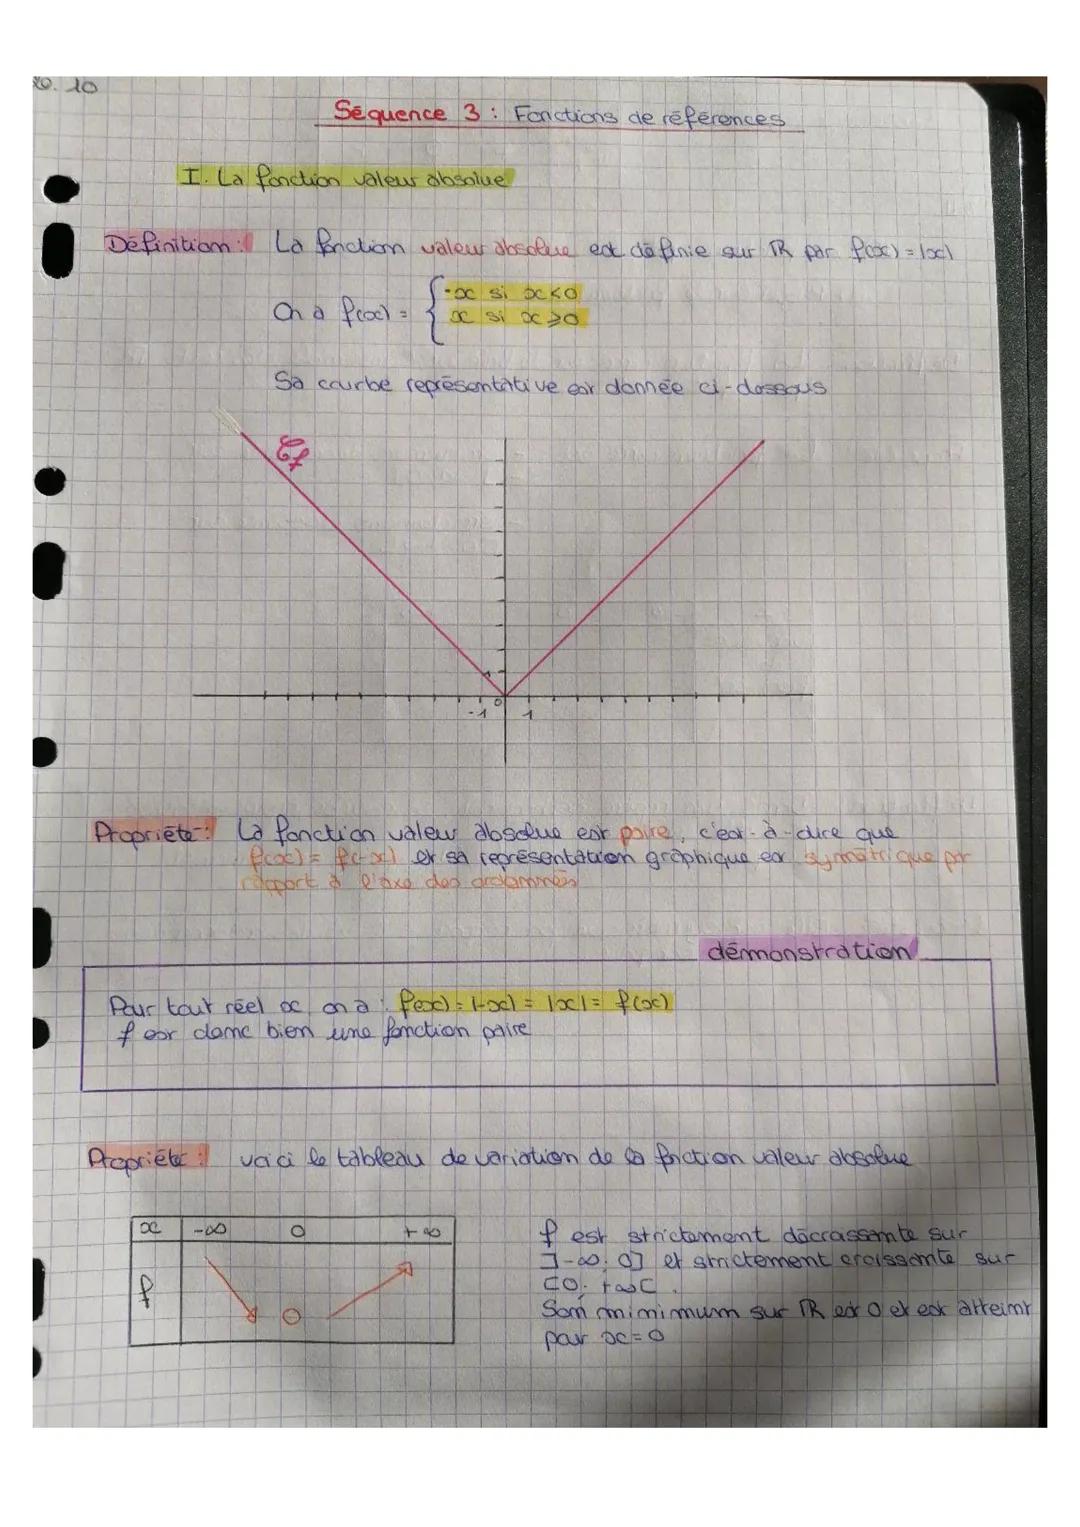 Séquence 3 : Fonctions de références
I. La fonction valeur absolue
Définition : La fonction valeur absolue est définie sur ℝ par f(x) = |x|
On a f(x) = { -x si x<0
x si x⩾0
Sa courbe représentative est donnée ci-dessous
Cf
-1 0 1
Propriété : La fonction valeur absolue est paire, c'est-à-dire que
f(x) = f(-x) et sa représentation graphique est symétrique par
rapport à l'axe des ordonnées
démonstration
Pour tout réel x, on a : f(x) = |-x| = |x| = f(x)
f est donc bien une fonction paire
Propriété : voici le tableau de variation de la fonction valeur absolue
x -∞ 0 +∞
f 0
f est strictement décroissante sur
]-∞; 0] et strictement croissante sur
[0; +∞[.
Son minimum sur ℝ est 0 et est atteint
pour x=0